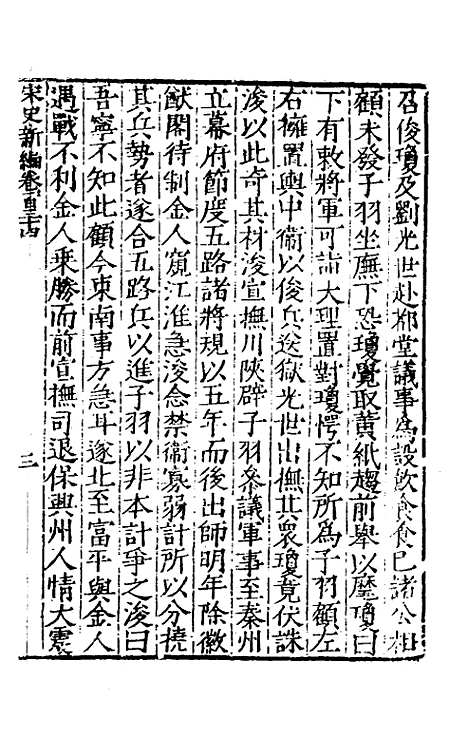 召俊瓊及劉光世赴都堂議事為設飲食食巳諸公相
顧未發子羽坐廡下恐瓊覺取黃紙趨前舉以麾瓊曰
下有敕將軍可詣大理置對瓊愕不知所為子羽顧左
右擁置輿中衛以俊兵送獄光世出撫其眾瓊竟伏誅
浚以此奇其材浚宣撫川陝辟子羽參議軍事至秦州
立幕府節度五路諸將規以五年而後出師明年除徽
猷閣待制金人窺江淮急浚念禁衛寡弱計所以分撓
其兵勢者遂合五路兵以進子羽以非本計爭之浚曰
吾寧不知此顧今東南事方急耳遂北至富平與金人
遇戰不利金人乘勝而前宣撫司退保興州人情大震
宋史新編卷一百三十四
三